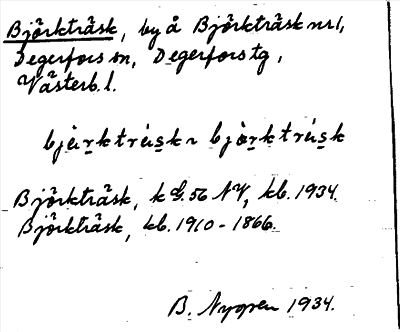 Björkträsk, by å Björkträsk nr 1,
Degerfors sn, Degerfors tg,
Västerb. l.
bjärkträsk ~ björkträsk
Björkträsk, k G.56 NV, kb. 1934.
Björkträsk, kb. 1910-1866.
B. Nygren 1934.